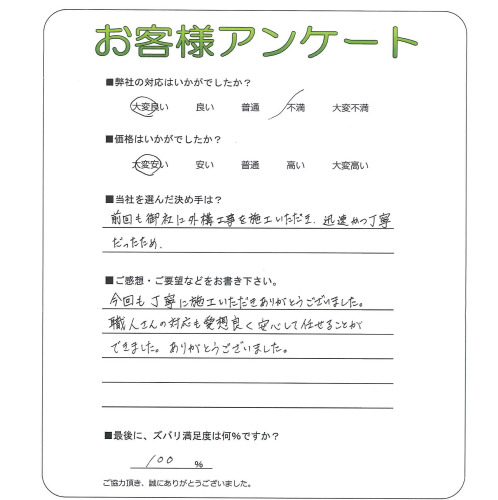 お客様アンケート
■弊社の対応はいかがでしたか?
大変良い 良い 普通 不満 大変不満
■価格はいかがでしたか?
大変安い 安い 普通 高い 大変高い
■当社を選んだ決め手は?
前回も御社に外構工事を施工いただき、迅速かつ丁寧
だったため。
■ご感想・ご要望などをお書き下さい。
今回も丁寧に施工いただきありがとうございました。
職人さんの対応も愛想良く安心して任せることが
できました。ありがとうございました。
■最後に、ズバリ満足度は何%ですか?
100 %
ご協力頂き、誠にありがとうございました。